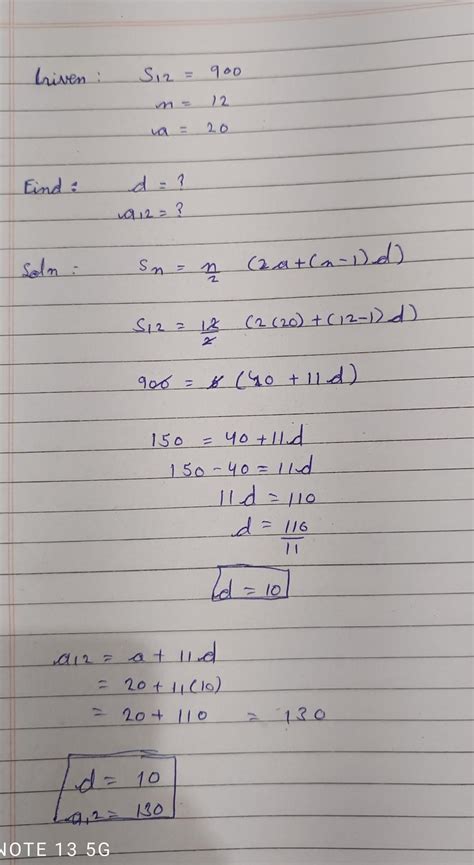 Given : S12 = 900
n = 12
a = 20
Find : d = ?
a12 = ?
Soln : Sn = n/2 (2a+(n-1)d)
S12 = 12/2 (2(20)+(12-1)d)
900 = 6 (40 + 11d)
150 = 40+11d
150-40 = 11d
11d = 110
d = 110/11
d = 10
a12 = a + 11d
= 20+11(10)
= 20+ 110 = 130
d = 10
a12 = 130
NOTE 13 5G